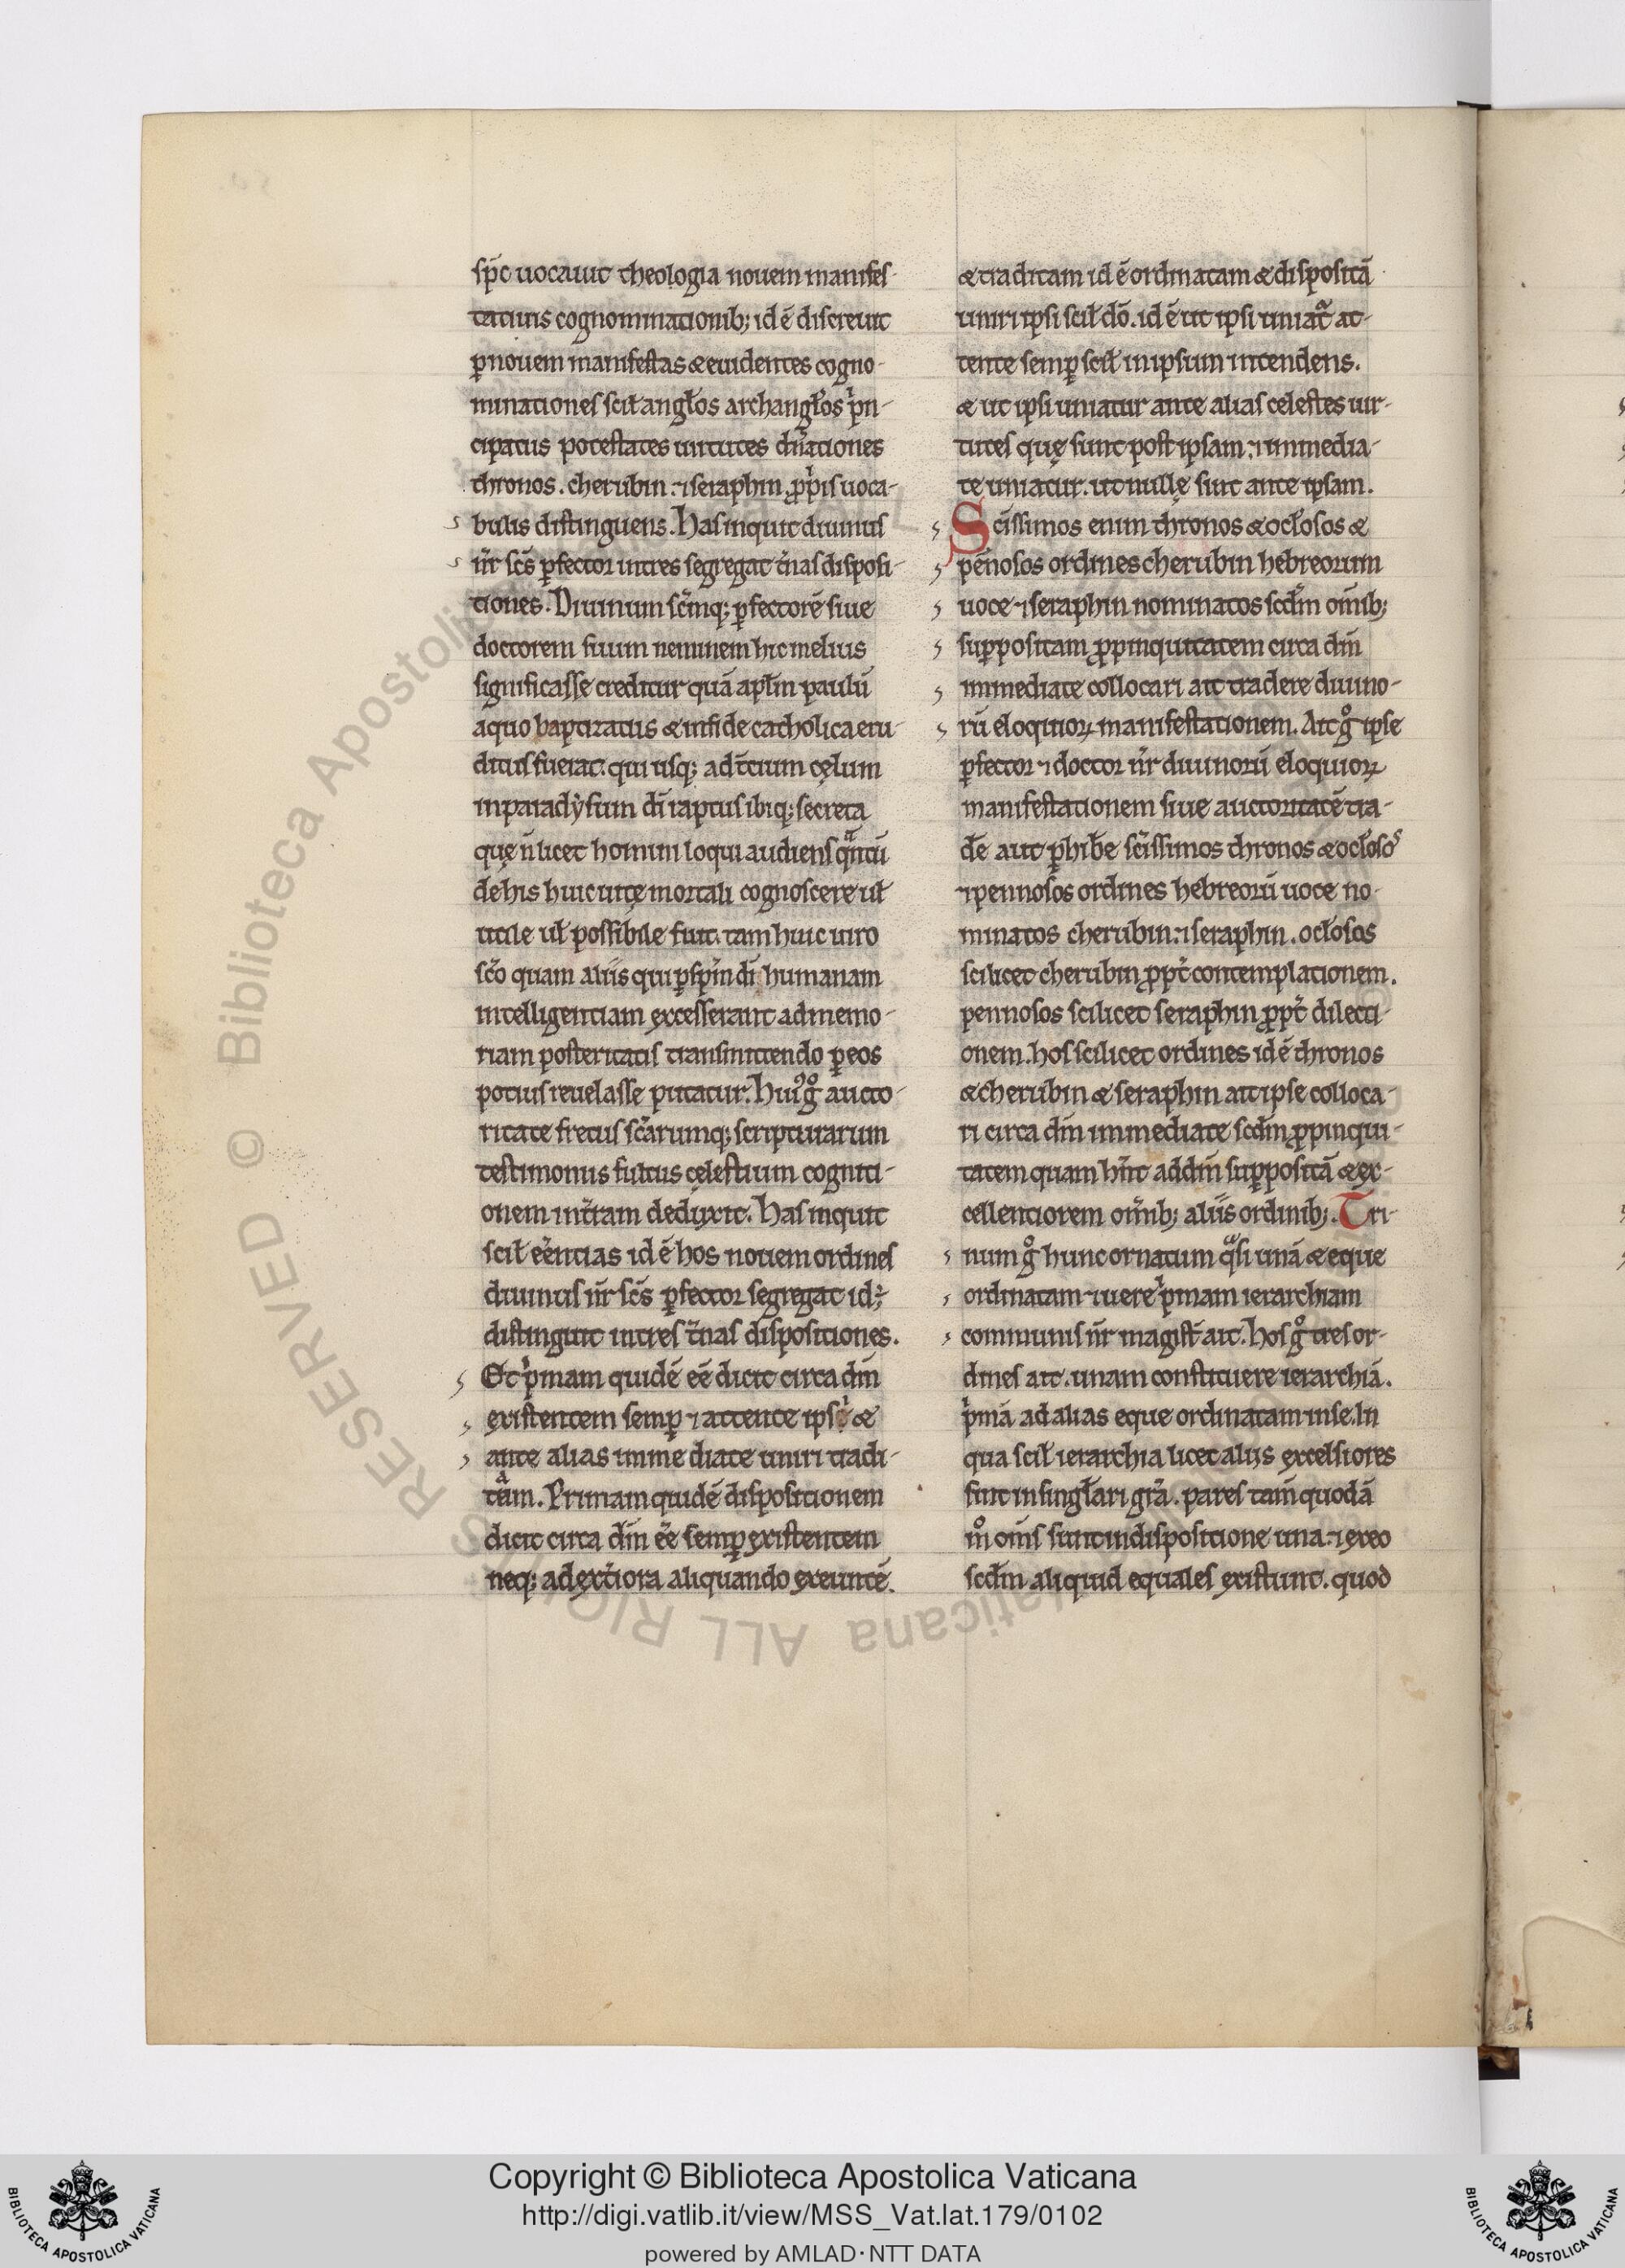 sp̄c uocauit theologia nouem manifes-
tatiuis cognominationib; id ē discreuit
ꝑ nouem manifestas & euidentes cogno-
minationes scił angłos archangłos pⁱn-
cipatus potestates uirtutes dn̄ationes
thronos. cherubin. ⁊ seraphin ꝓpⁱis uoca-
bulis distinguens. Has inquit diuinus
nr̄ sc̄s ꝑfector in tres segregat t̄nas disposi-
tiones. Diuinum sc̄mq; ꝑfectorē siue
doctorem suum neminem hic melius
significasse creditur quā apłm paulū
a quo baptizatus & in fide catholica eru-
ditus fuerat. qui usq; ad t̄cium cęlum
in paradẏsum dī raptus ibiq; secreta
quę n̄ licet homini loqui audiens qᵃntū
de his huic uitę mortali cognoscere uł
utile uł possibile fuit. tam huic uiro
sc̄o quam aliis qui ꝑ sp̄m dī humanam
intelligentiam excesserant ad memo-
riam posteritatis transmittendo ꝑ eos
potius reuelasse putatur. Huiꝰ gᵒ aucto-
ritate fretus sc̄arumq; scripturarum
testimoniis fultus cęlestium cogniti-
onem in t̄ram deduxit. Has inquit
scił eēntias id ē hos nouem ordines
diuinus nr̄ sc̄s ꝑfector segregat id ÷
distinguit in tres t̄nas dispositiones.
Et pⁱmam quidē eē dicit circa dm̄
existentem semꝑ ⁊ attente ipsi &
ante alias immediate uniri tradi-
tᵃm. Primam quidē dispositionem
dicit circa dm̄ eē semꝑ existentem
neq; ad ext̄iora aliquando exeuntē.
& traditam id ē ordinatam & dispositā
uniri ipsi scił dō. id ē ut ipsi uniat᷑ at-
tente semꝑ scił in ipsum intendens.
& ut ipsi uniatur ante alias celestes uir-
tutes quę sunt post ipsam. ⁊ immedia-
te uniatur. ut nullę sint ante ipsam.
Sc̄issimos enim thronos & ocłosos &
pēnosos ordines cherubin hebreorum
uoce ⁊ seraphin nominatos scd̄m om̄ib;
supꝑpositam ꝓpinquitatem circa dm̄
immediate collocari ait tradere diuino-
rū eloquioꝝ manifestationem. Ait gᵒ ipse
ꝑfector ⁊ doctor nr̄ diuinorū eloquioꝝ
manifestationem siue auctoritatē tra-
dē aut ꝑhibē sc̄issimos thronos & ocłosoˢ
⁊ pennosos ordines hebreorū uoce no-
minatos cherubin. ⁊ seraphin. ocłosos
scilicet cherubin ꝓpt̄ contemplationem.
pennosos scilicet seraphin ꝓpt̄ dilecti-
onem. hos scilicet ordines id ē thronos
& cherubin & seraphin ait ipse colloca-
ri circa dm̄ immediate scd̄m ꝓpinqui-
tatem quam hn̄t ad dm̄ supꝑpositā & ex-
cellentiorem om̄ib; aliis ordinib;. Tri-
num gᵒ hunc ornatum qᵃsi unā & eque
ordinatam ⁊ uere pⁱmam ierarchiam
communis nr̄ magist̄ ait. Hos gᵒ tres or-
dines ait. unam constituere ierarchiā.
pⁱmā ad alias eque ordinatam in se. In
qua scił ierarchia licet alijs excelsiores
sint in singłari gr̄a. pares tam̄ quodā
mᵒ om̄s sunt in dispositione una. ⁊ ex eo
scd̄m aliquid equales existunt. quod
Copyright © Biblioteca Apostolica Vaticana
http://digi.vatlib.it/view/MSS_Vat.lat.179/0102
powered by AMLAD·NTT DATA
BIBLIOTECA APOSTOLICA VATICANA
BIBLIOTECA APOSTOLICA VATICANA